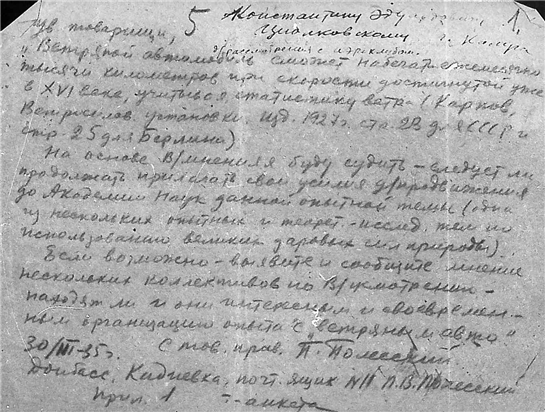 Ув товарищи, 5 Константину Эдуардовичу 1
Циолковскому г. Калуга
"Ветряной автомобиль сможет набегать ежемесячно
тысячи километров при скорости достигнутой уже
в XVI веке, учитывая статистику ветра (Карпов,
Ветросилов. установки. изд. 1927 г. ста. 23 для СССР и
стр. 25 для Берлина)
На основе В/мнения я буду судить – следует ли
продолжать прилагать свои усилия д/продвижения
до Академии Наук данной опытной темы (одна
из нескольких опытных и теорет.-исслед. тем по
использованию великих даровых сил природы).
Если возможно – выявите и сообщите мнение
нескольких коллективов по В/усмотрению –
находят ли и они интересным и своевремен-
ным организацию опыта с "ветряным авто"
30/III-35 г. С тов. прив. П. Полесский
Донбасс, Кадиевка, почт. ящик N11 П.В. Полесский
Прил. 1 -анкета